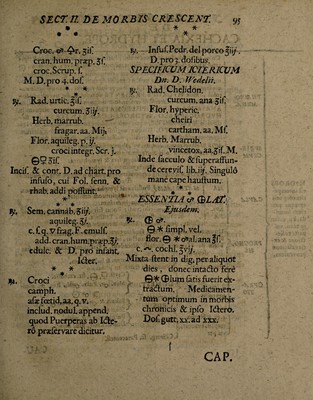 SECT. II. DE MORBIS CRESCENT. 95
Croc. ♂. ♀r. ʒiſ.
cran. hum. præp. ʒſ.
croc. Scrup. ſ.
M. D. pro 4. doſ.
℞. Rad. urtic. ʒiſ.
curcum. ʒiij.
Herb. marrub.
fragar. aa. Mij.
Flor. aquileg. p. ij.
croci integr. Scr. j.
ʒiſ.
Inciſ. & cont. D. ad chart. pro
infuſo, cui Fol. ſenn. &
rhab. addi poſſint.
℞. Sem. cannab. ʒiij.
aquileg. ʒj.
c. ſ. q. ▽ frag. F. emulſ.
add. cran. hum. præp. ʒj.
edulc. & D. pro infant.
Icter.
℞. Croci
camph.
aſæ fœtid. aa. q. v.
includ. nodul. append.
quod Puerperas ab Icte-
rô præſervare dicitur.
℞. Infuſ. Pedr. del porco ʒiij.
D. pro 3. doſibus.
SPECIFICUM ICTERICUM
Dn. D. Wedelii.
℞. Rad. Chelidon.
curcum. ana ʒiſ.
Flor. hyperic.
cheiri
cartham. aa. Mſ.
Herb. Marrub.
vincetox. aa. ʒiſ. M.
Inde ſacculo & ſuperaffun-
de cereviſ. lib. iij. Singulô
mane cape hauſtum.
ESSENTIA
LAT.
Ejusdem.
℞.
ſimpl. vel.
flor.
al. ana ʒſ.
cochl. ʒvij.
Mixta ſtent in dig. per aliquot
dies, donec intacto ferè
ium ſatis fuerit ex-
tractum. Medicamen-
tum optimum in morbis
chronicis & ipſo Icterô.
Doſ. gutt. xx. ad xxx.
CAP.